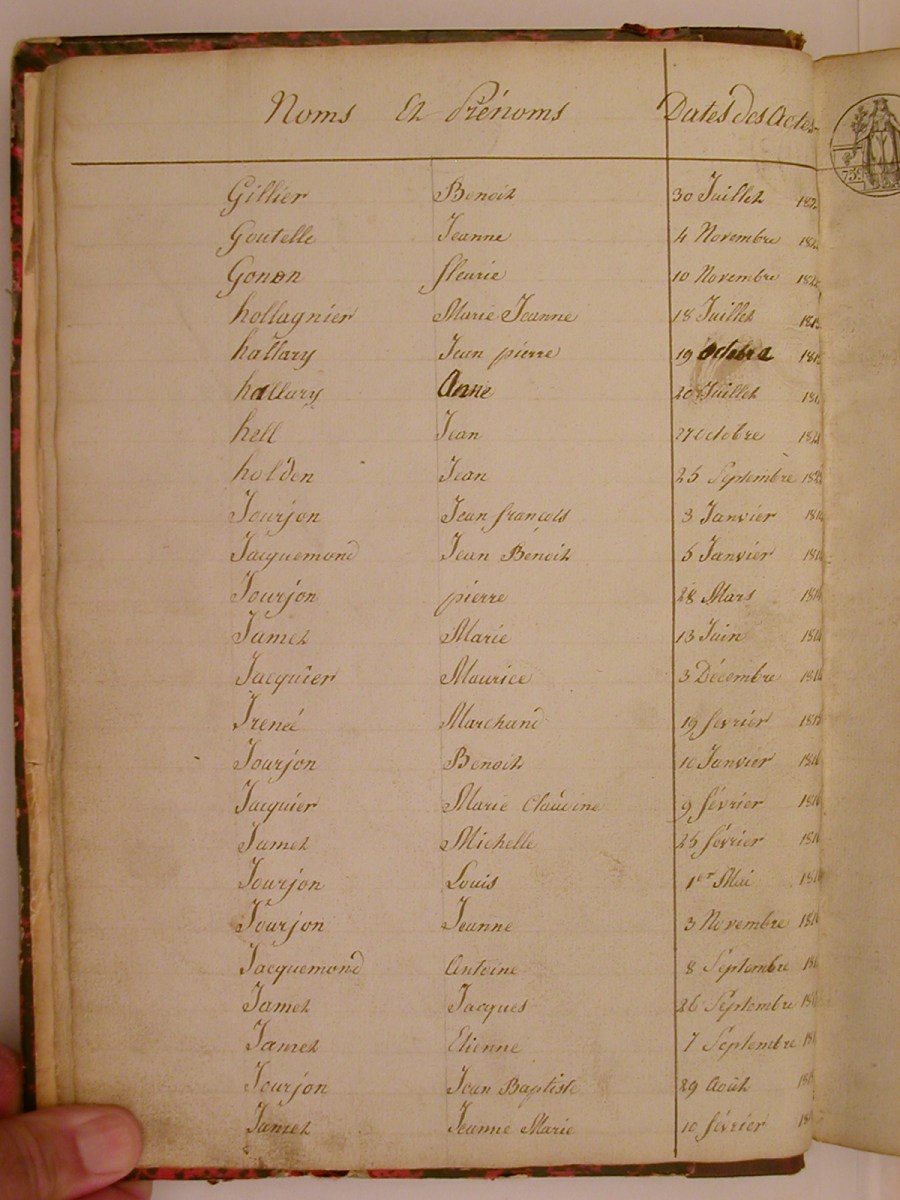 Noms Et Prénoms Dates des Actes
Gillier Benoit 30 Juillet
Goutelle Jeanne 4 Novembre
Gonon fleurie 10 Novembre
hollagnier Marie Jeanne 18 Juillet
hallary Jean pierre 19 octobre
hallary Anne 20 Juillet
hell Jean 27 octobre
holden Jean 25 Septembre
Jourjon Jean françois 3 Janvier
Jacquemond Jean Benoit 5 Janvier
Jourjon pierre 28 Mars
Jamet Marie 13 Juin
Jacquier Maurice 3 Décembre
Ireneé Marchand 19 fevrier
Jourjon Benoit 10 Janvier
Jacquier Marie Claudine 9 février
Jamet Michelle 25 février
Jourjon Louis 1er Mai
Jourjon Jeanne 3 Novembre
Jacquemond Antoine 8 Septembre
Jamet Jacques 26 Septembre
Jamet Etienne 7 Septembre
Jourjon Jean Baptiste 29 Août
Jamet Jeanne Marie 10 février